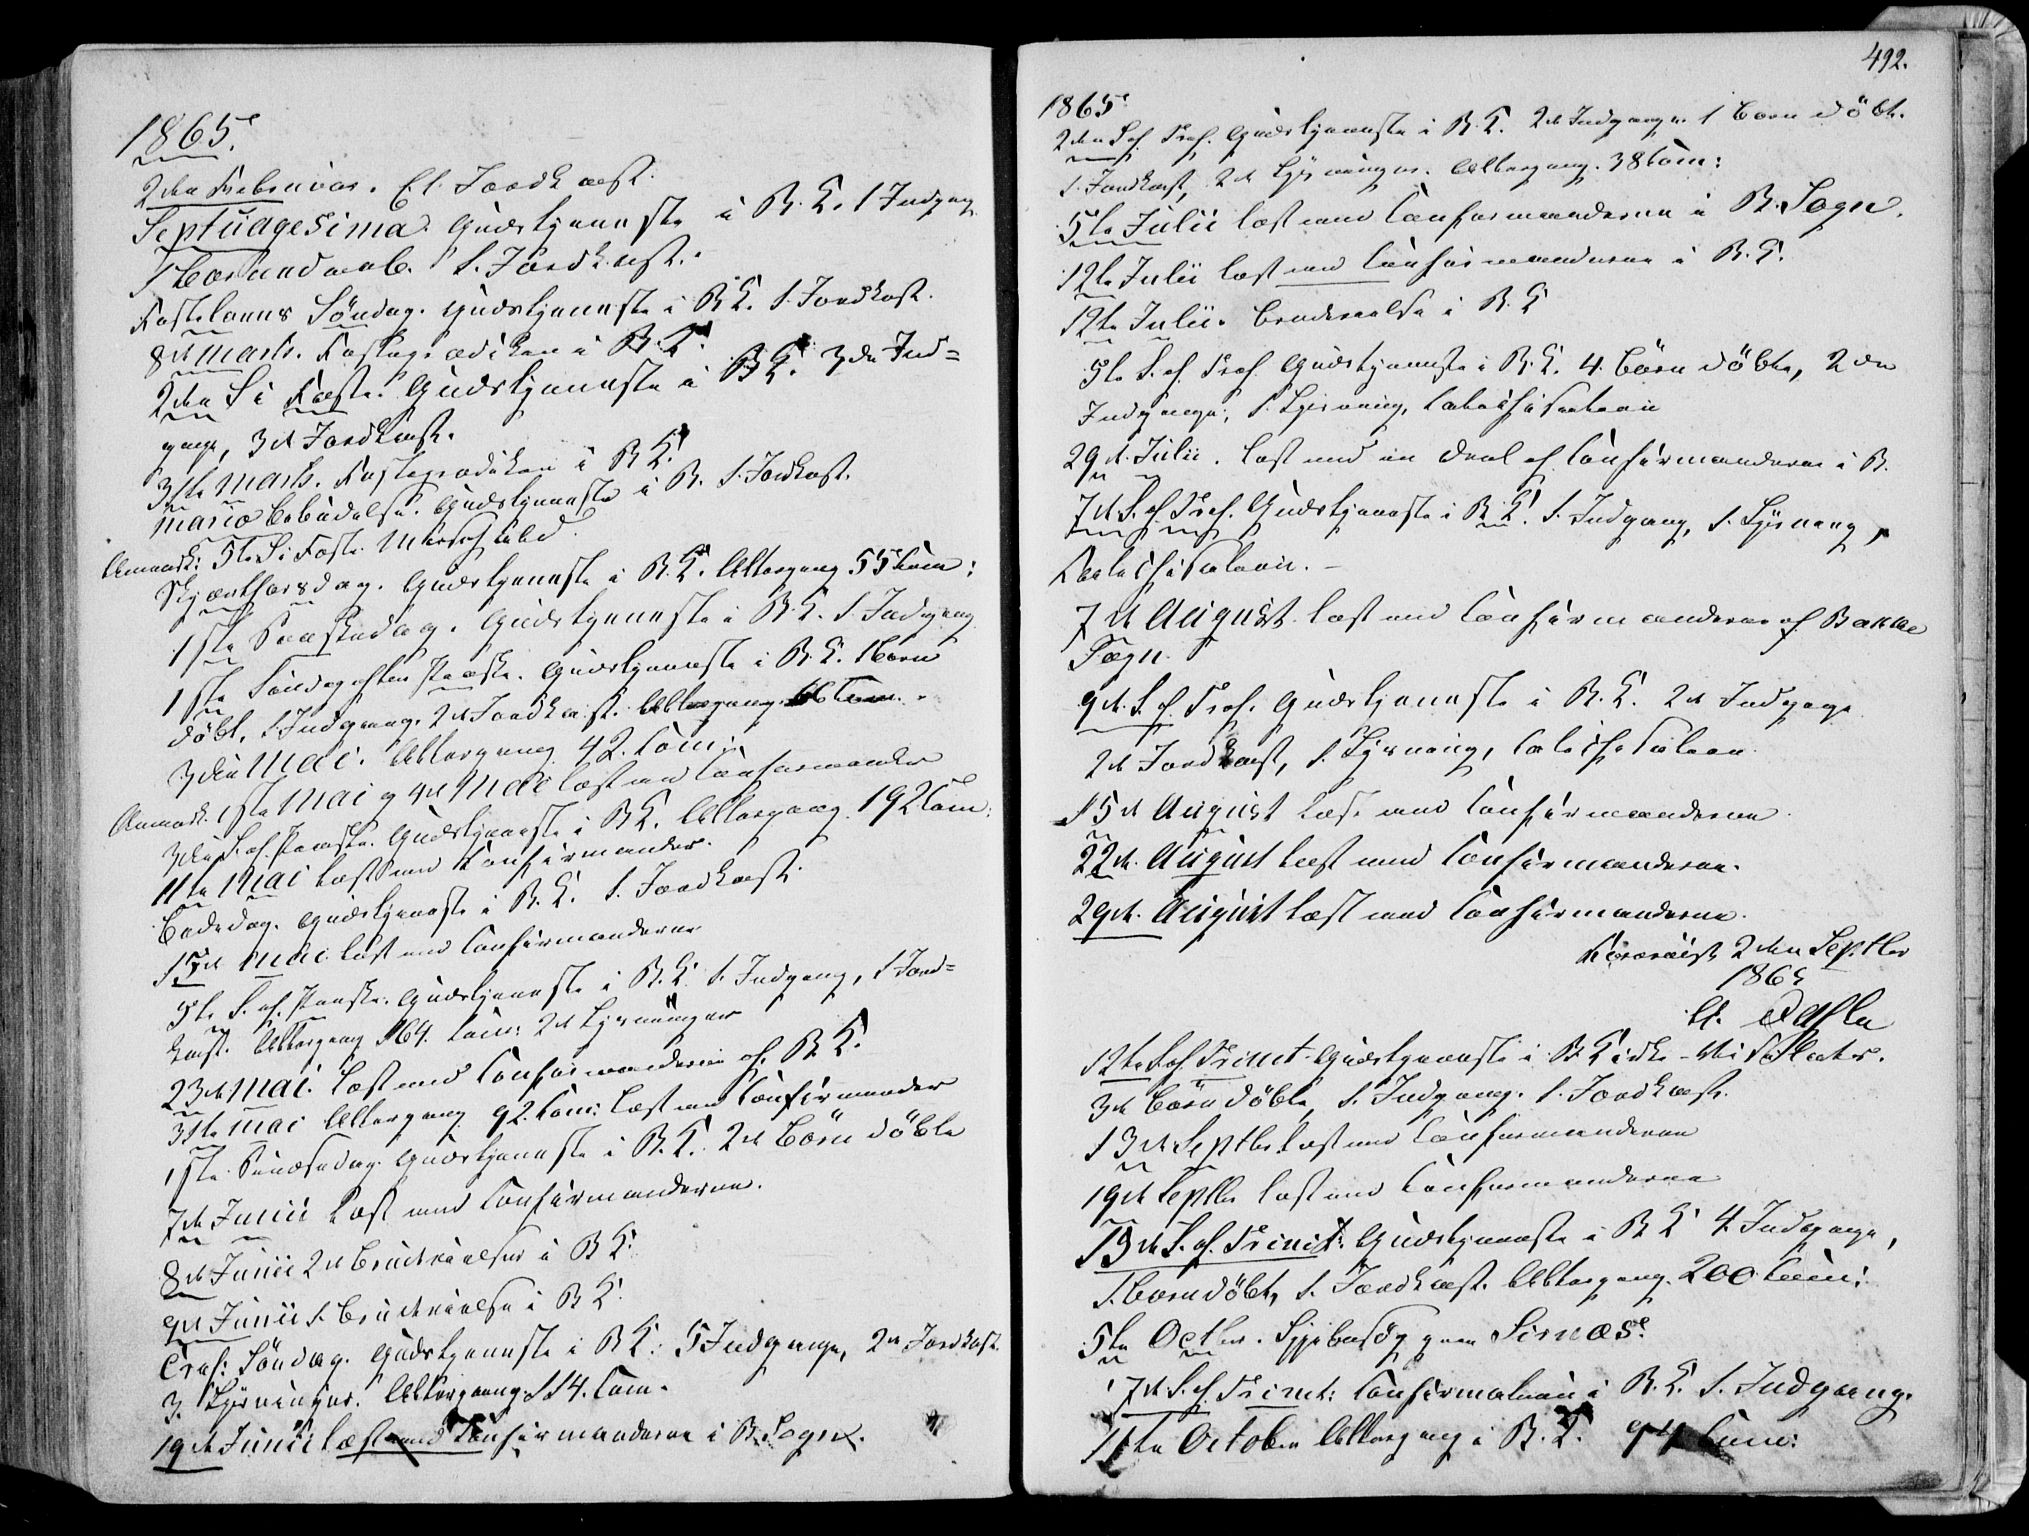 1865.
2den Februar. Et Jordkast.
Septuagesima. Gudstjeneste i B. K. 1 Indgang
1 Barn 1. Jordkast.
Fastelavns Söndag. Gudstjeneste i B. K. 1. Jordkast.
8de Marts. Fasteprædiken i B. K.
2den S. i Faste. Gudstjeneste i B. K. 3de Ind=
gange, 3de Jordkast.
Marts. Fasteprædiken i B. K.
Mariæ Bebudelse. Gudstjeneste i B. 1. Jordkast.
Anmærk: 5te S. i Faste. Messefald.
Skjærthorsdag. Gudstjeneste i B. K. Altergang 55 Com:
1ste Paaskedag. Gudstjeneste i B. K. 1. Indgang
1ste Söndag efter Paaske. Gudstjeneste i B. K. 1 Barn
döbt. 1 Indgang. 2de Jordkast. Altergang Com.
3die Mai. Altergang 42. Com:
Anmærk. 1ste Mai og 4de Mai læst med Confirmander
3die S. ef. Paaske. Gudstjeneste i B K. Altergang 192 Com:
11te Mai læst med Confirmander.
Bededag. Gudstjeneste i B. K. 1. Jordkast.
15de Mai læst med Confirmanderne
5te S. ef. Paaske. Gudstjeneste i B. K. 1. Indgang, 1 Jord=
kast. Altergang 164. Com: 2de Lysninger
23de Mai. Læst med Confirmanderne af B. K.
31te Mai Altergang 92. Com: læst med Confirmander
1ste Pindsedag Gudstjeneste i B. K. 2de Börn döbte
7de Junii læst med Confirmanderne.
8de Junii 2de Brudevielser i B K.
9de Junii 1. Brudevielse i B K.
Tref: Söndag. Gudstjeneste i B K. 5 Indgange, 2de Jordkast
3. Lysninger. Altergang 114. Com.
19de Junii læst med Confirmanderne i B. Sogn.
492.
1865
2den S. ef. Tref. Gudstjeneste i B. K. 2de Indgange. 1 Barn döbt.
1. Jordkast, 2de Lysninger. Altergang. 38 Com:
5te Julii læst med Confirmanderne i B. Sogn.
12te Julii læst med Confirmanderne i B. K.
12te Julii. Brudevielse i B. K
5te S. ef. Tref. Gudstjeneste i B. K. 4. Börn döbte, 2de
Indgange, 1. Lysning, Catechisation
29de Julii. læst med en Deel af Confirmanderne i B.
7de S. ef. Tref. Gudstjeneste i B. K. 1. Indgang, 1. Lysning,
Catechisation. -
7de August læst med Confirmanderne af Bakke
Sogn.
9de S. ef. Tref. Gudstjeneste i B. K. 2de Indgange
2de Jordkast, 1. Lysning, Catechisation.
15de August læst med Confirmanderne.
22de August læst med Confirmanderne.
29de August læst med Confirmanderne.
2den Septbr
1865
12te S. ef. Trinit. Gudstjeneste i B. Kirke - Visitats.
3de Börn döbte, 1. Indgang. 1. Jordkast.
13de Septbr. læst med Confirmanderne
19de Septbr læst med Confirmanderne
15de S. ef. Trinit: Gudstjeneste i B K 4. Indgange,
1. Barn döbt, 1. Jordkast. Altergang. 200 Com:
5te Octbr. Sygebesög paa Sirnæs.
17de S. ef. Trinit: Confirmation i B. K. 1. Indgang.
11te October Altergang i B. K. 94 Com: